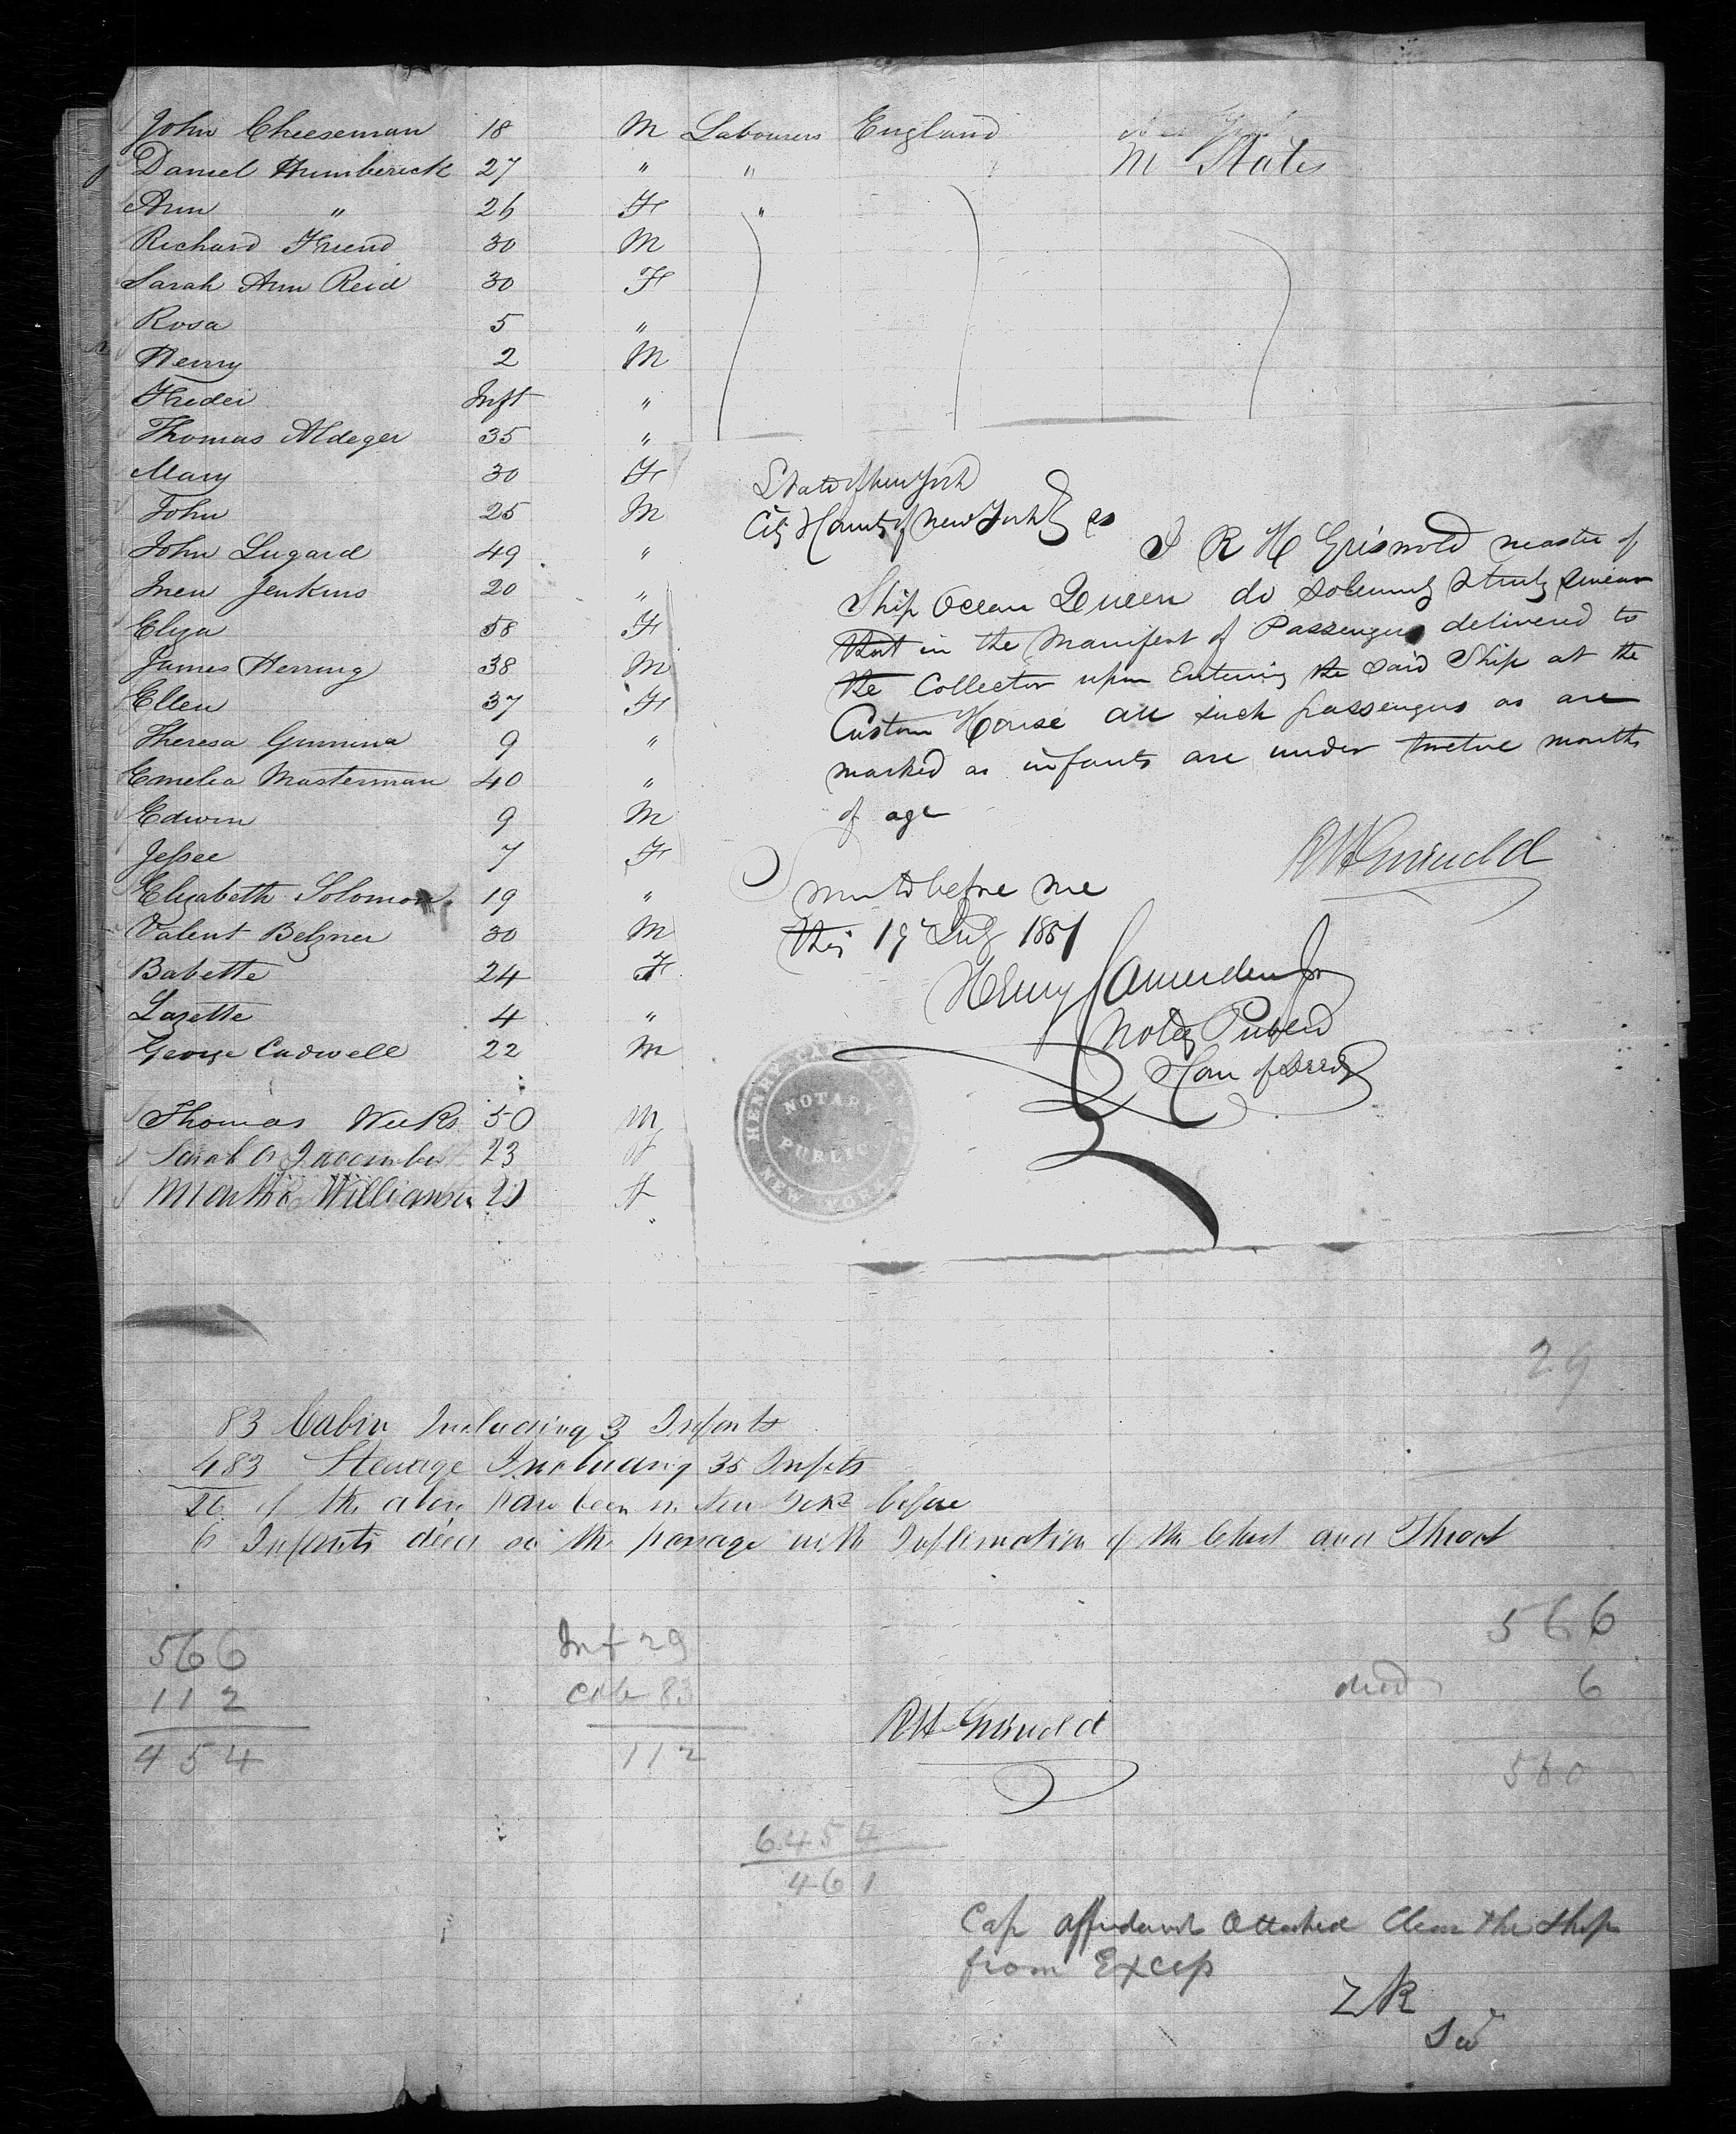 John Cheeseman 18 M Labourers England New York
Daniel Humberick 27 " " m States
Ann " 26 F "
Richard Friend 30 M
Sarah Ann Reid 30 F
Rosa 5 "
Henry 2 M
Freder Inft "
Thomas Aldeger 35 "
Mary 30 F
John 25 M
John Lugard 49 "
Jenkins 20 "
Eliza 58 F
James Herring 38 M
Ellen 37 F
Theresa 9 "
Emelia Masterman 40 "
Edwin 9 M
Jessee 7 F
Elizabeth Solomon 19 "
Valent Belzner 30 M
Babette 24 F
Lazette 4 "
George Cadwell 22 M
Thomas Weeks 50 M
Sarah 23
Martha Williamson F
State of New York
City & County of New York ss
I R H Griswold master of
Ship Ocean Queen do solemnly & truly swear
that in the Manifest of Passengers delivered to
the Collector upon Entering the said Ship at the
Custom House all such passengers as are
marked as infants are under twelve months
of age
RH Griswold
Sworn to before me
this 19 July 1851
Henry Camerden Jr
Notary Public
Com of Deeds
HENRY CAMERDEN JR
NOTARY
PUBLIC
NEW YORK
29
83 Cabin Including 3 Infants
483 Steerage Including 35 Infts
20 of the above have been in New York before
6 Infants died on the passage with Inflamation of the Chest and Throat
566 Inf 29 566
112 Cab 83 died 6
454 112 560
RH Griswold
6.454
461
Cap affidavit attached Clear the Ship
from Excess